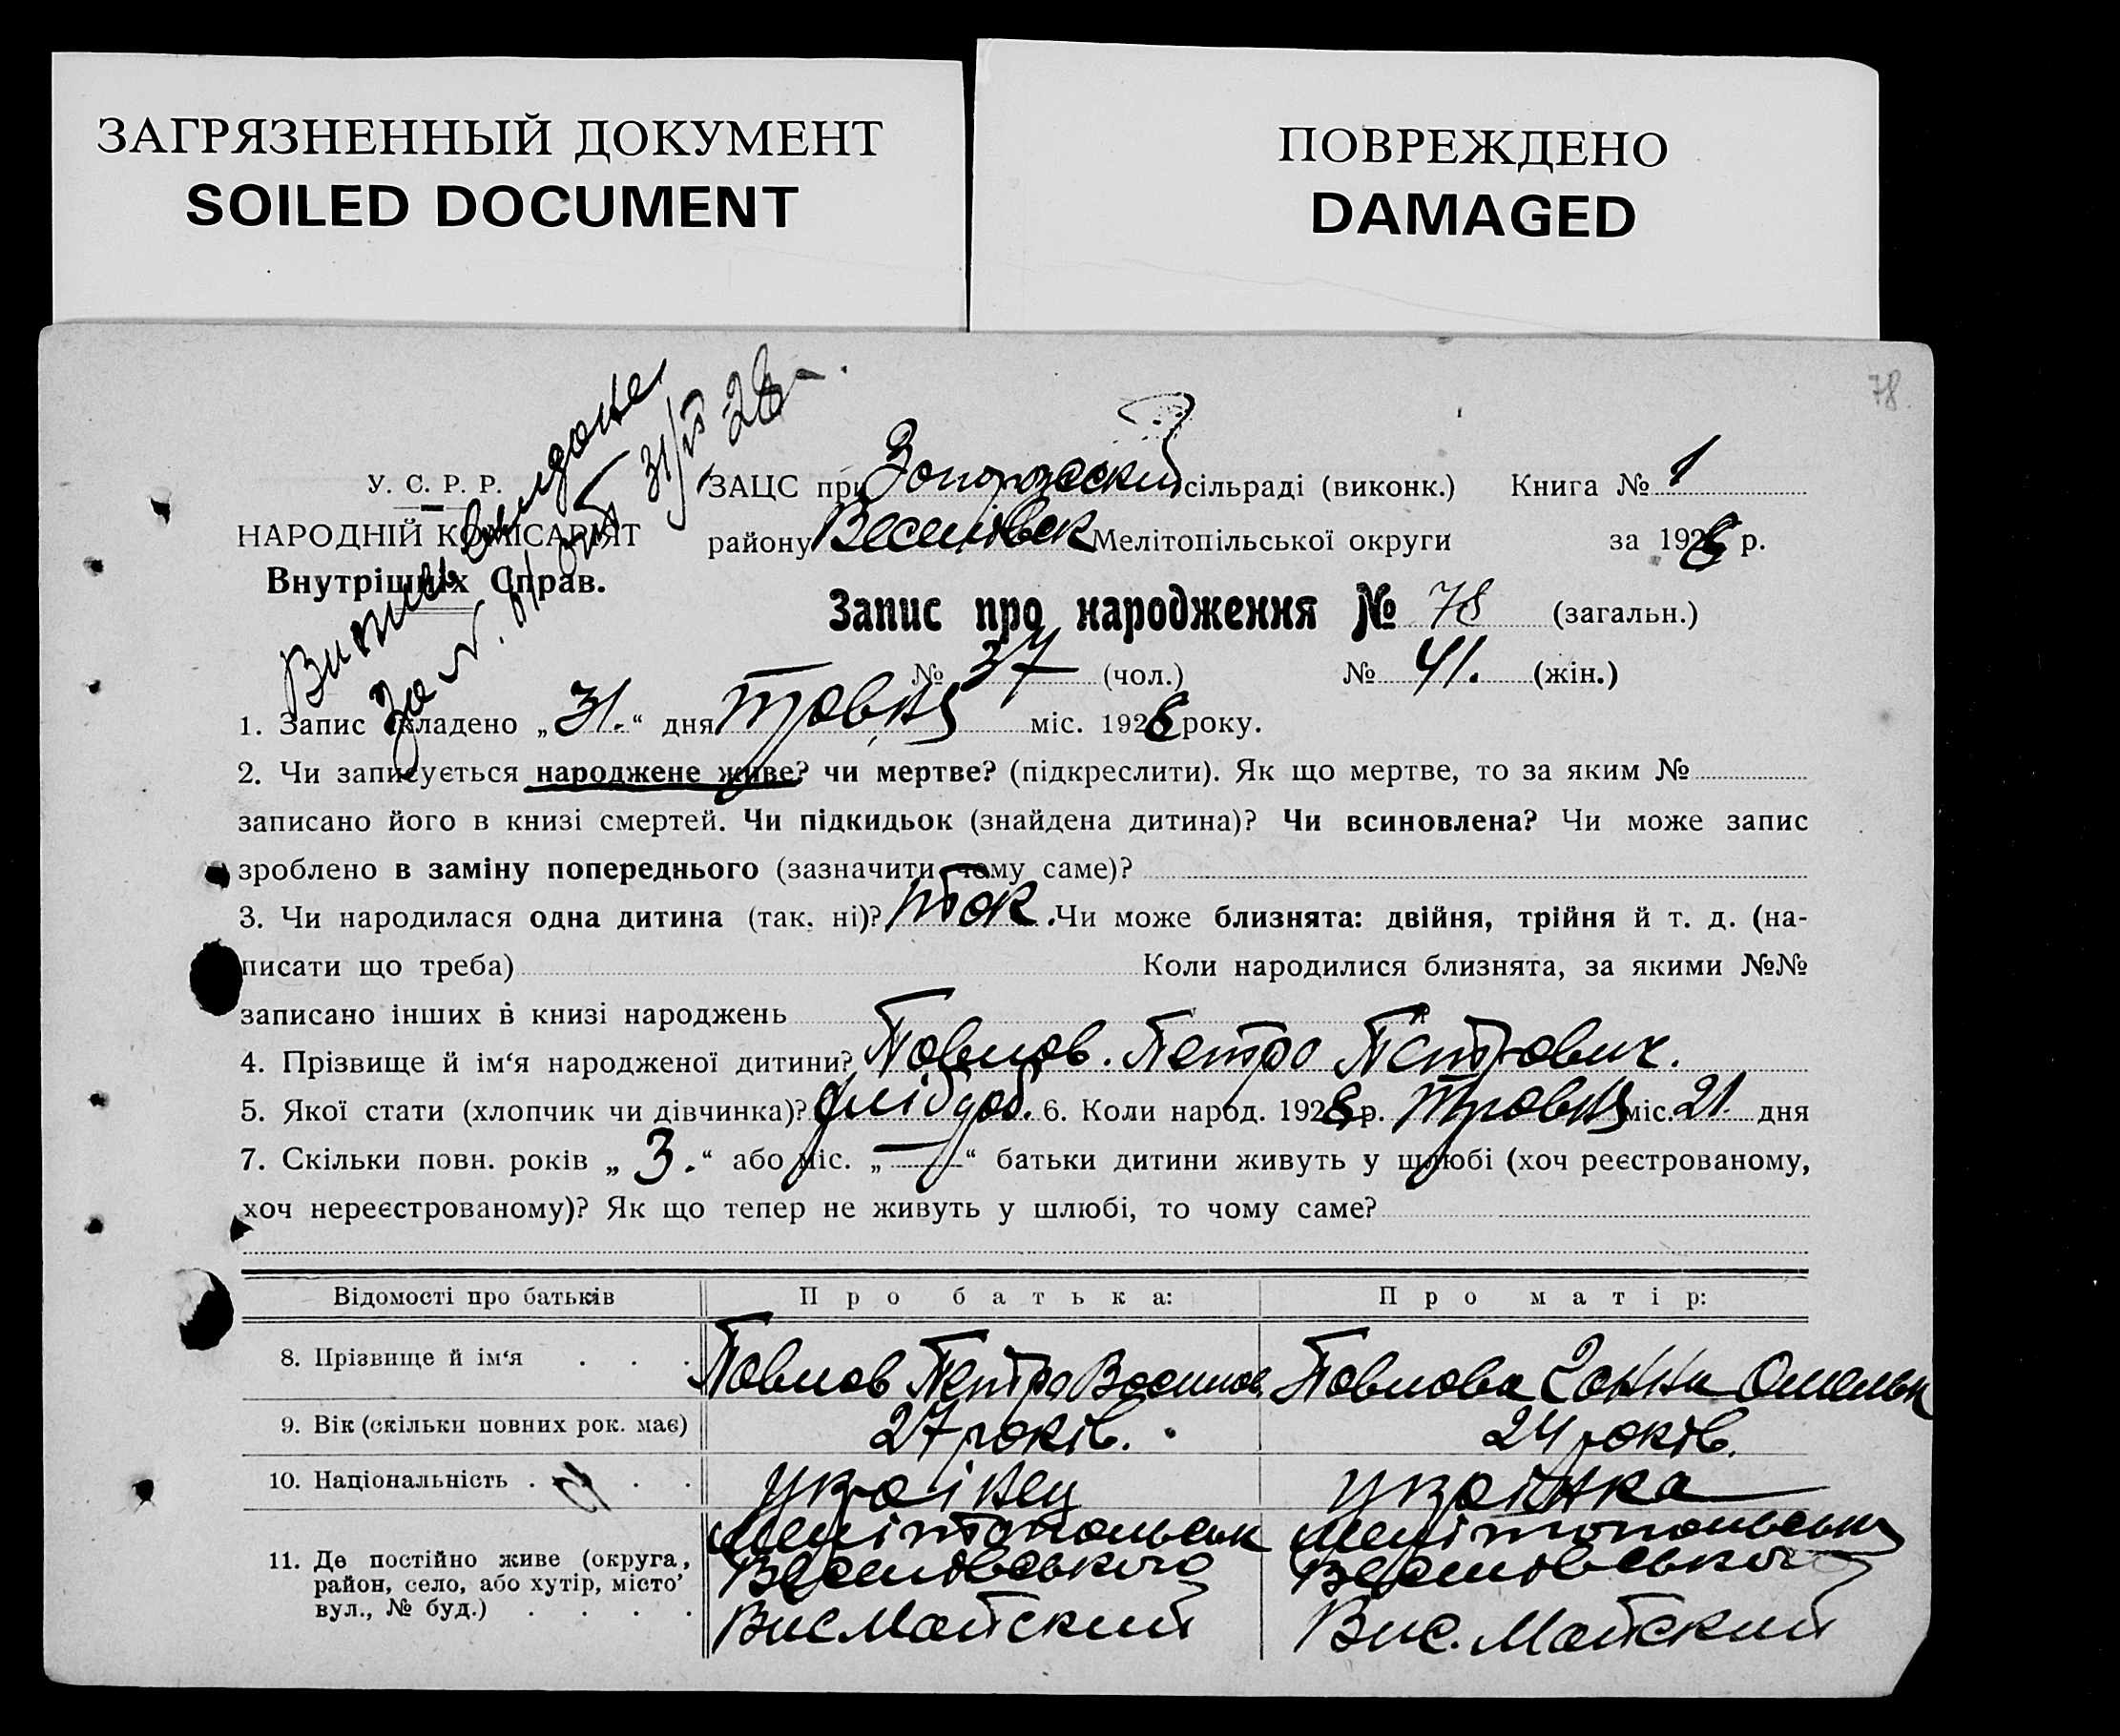 ЗАГРЯЗНЕННЫЙ ДОКУМЕНТ
SOILED DOCUMENT
ПОВРЕЖДЕНО
DAMAGED
78
У. С. Р. Р.
НАРОДНІЙ КОМІСАРІЯТ
Внутрішніх Справ.
31/V 28
ЗАЦС при сільраді (виконк.) Книга № 1
району Веселівск Мелітопільської округи за 1928 р.
Запис про народження № 78 (загальн.)
№ 37 (чол.) № 41. (жін.)
1. Запис складено „31.“ дня травня міс. 1928 року.
2. Чи записується народжене живе? чи мертве? (підкреслити). Як що мертве, то за яким №
записано його в книзі смертей. Чи підкидьок (знайдена дитина)? Чи всиновлена? Чи може запис
зроблено в заміну попереднього (зазначити чому саме)?
3. Чи народилася одна дитина (так. ні)? так. Чи може близнята: двійня, трійня й т. д. (на-
писати що треба) Коли народилися близнята, за якими №№
записано інших в книзі народжень
4. Прізвище й ім‘я народженої дитини? Павлов. Петро Петрович.
5. Якої стати (хлопчик чи дівчинка)? 6. Коли народ. 1928 р. травня міс. 21. дня
7. Скільки повн. років „3.“ або міс. „—“ батьки дитини живуть у шлюбі (хоч реєстрованому,
хоч нереєстрованому)? Як що тепер не живуть у шлюбі, то чому саме?
Відомості про батьків Про батька: Про матір:
8. Прізвище й ім‘я . . . Павлов Петро Павлова Ганна Омельк
9. Вік (скільки повних рок. має) 27 років. 24 років.
10. Національність . . . . українец українка
11. Де постійно живе (округа, район, село, або хутір, місто’ вул., № буд.) . . . . Мелітопольськ Мелітопольськ
Веселівського Веселівського
Вис Майский Вис. Майский